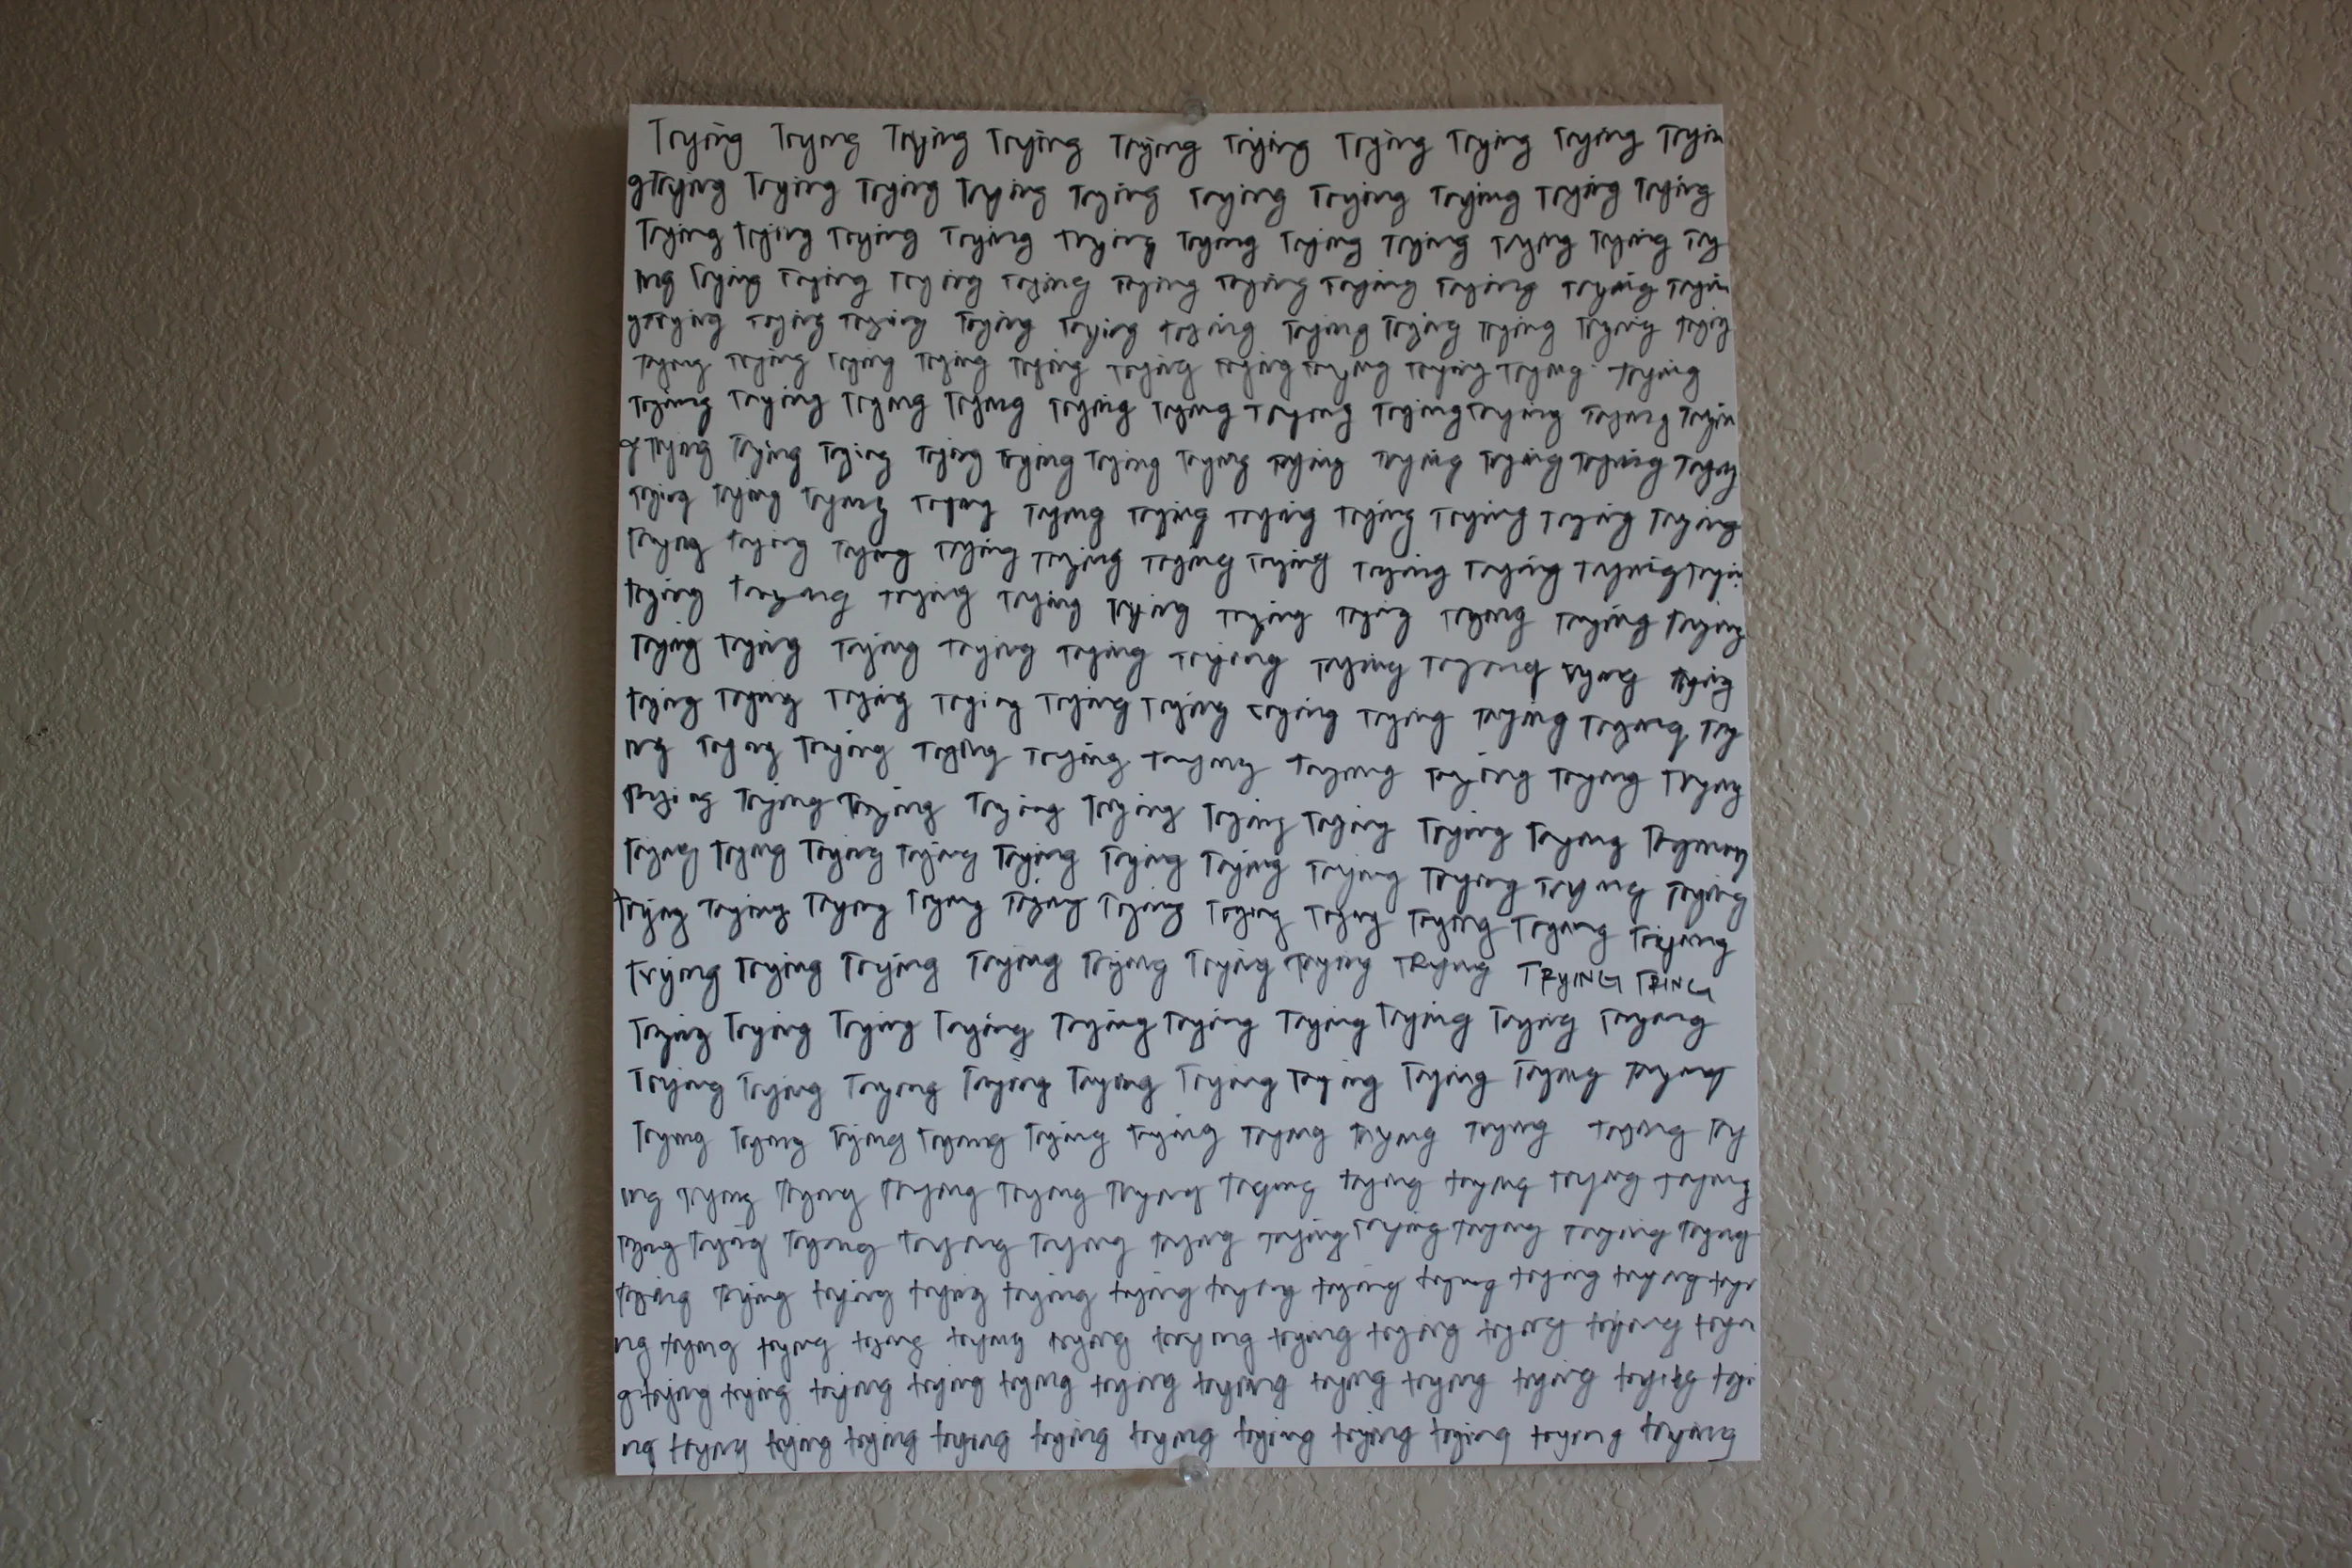 Trying Trying Trying Trying Trying Trying Trying Trying Trying Tryin
gTrying Trying Trying Trying Trying Trying Trying Trying Trying Trying
Trying trying Trying Trying trying Trying Trying Trying Trying Trying Try
ing Trying Trying Trying Trying Trying Trying Trying Trying Trying Tryin
gTrying Trying Trying Trying Trying trying Trying Trying Trying Trying Trying
Trying Trying Trying Trying Trying Trying Trying Trying Trying Trying trying
Trying Trying Trying Trying Trying Trying Trying Trying Trying Trying Tryin
g Trying Trying Trying Trying Trying Trying Trying Trying Trying Trying Trying Trying
Trying Trying Trying Trying Trying Trying Trying Trying Trying Trying Trying
Trying trying Trying Trying Trying Trying Trying Trying Trying Trying Tryin
trying trying Trying Trying Trying Trying Trying Trying Trying Trying
Trying Trying Trying Trying Trying Trying Trying Trying Trying Trying
trying Trying Trying Trying Trying Trying Trying Trying Trying Trying Try
ing Trying Trying Trying Trying Trying Trying Trying Trying Trying
Trying Trying Trying Trying Trying Trying Trying Trying Trying
Trying Trying Trying Trying Trying Trying Trying Trying Trying Trying Trying
trying Trying Trying Trying Trying Trying Trying Trying Trying Trying Trying
trying Trying Trying Trying Trying Trying Trying TRying TRYING TRING
Trying Trying Trying Trying Trying Trying Trying Trying Trying Trying
Trying Trying Trying Trying Trying Trying Trying Trying Trying Trying
Trying Trying Trying Trying Trying Trying Trying Trying Trying Trying Try
ing Trying Trying Trying Trying Trying Trying trying trying Trying trying
Trying Trying Trying Trying Trying Trying Trying Trying Trying Trying Trying
Trying Trying trying trying trying trying trying trying trying trying trying tryi
ng trying trying trying trying trying trying trying trying trying trying tryin
g trying trying trying trying trying trying trying trying trying trying trying tryi
ng trying trying trying trying trying trying trying trying trying trying trying